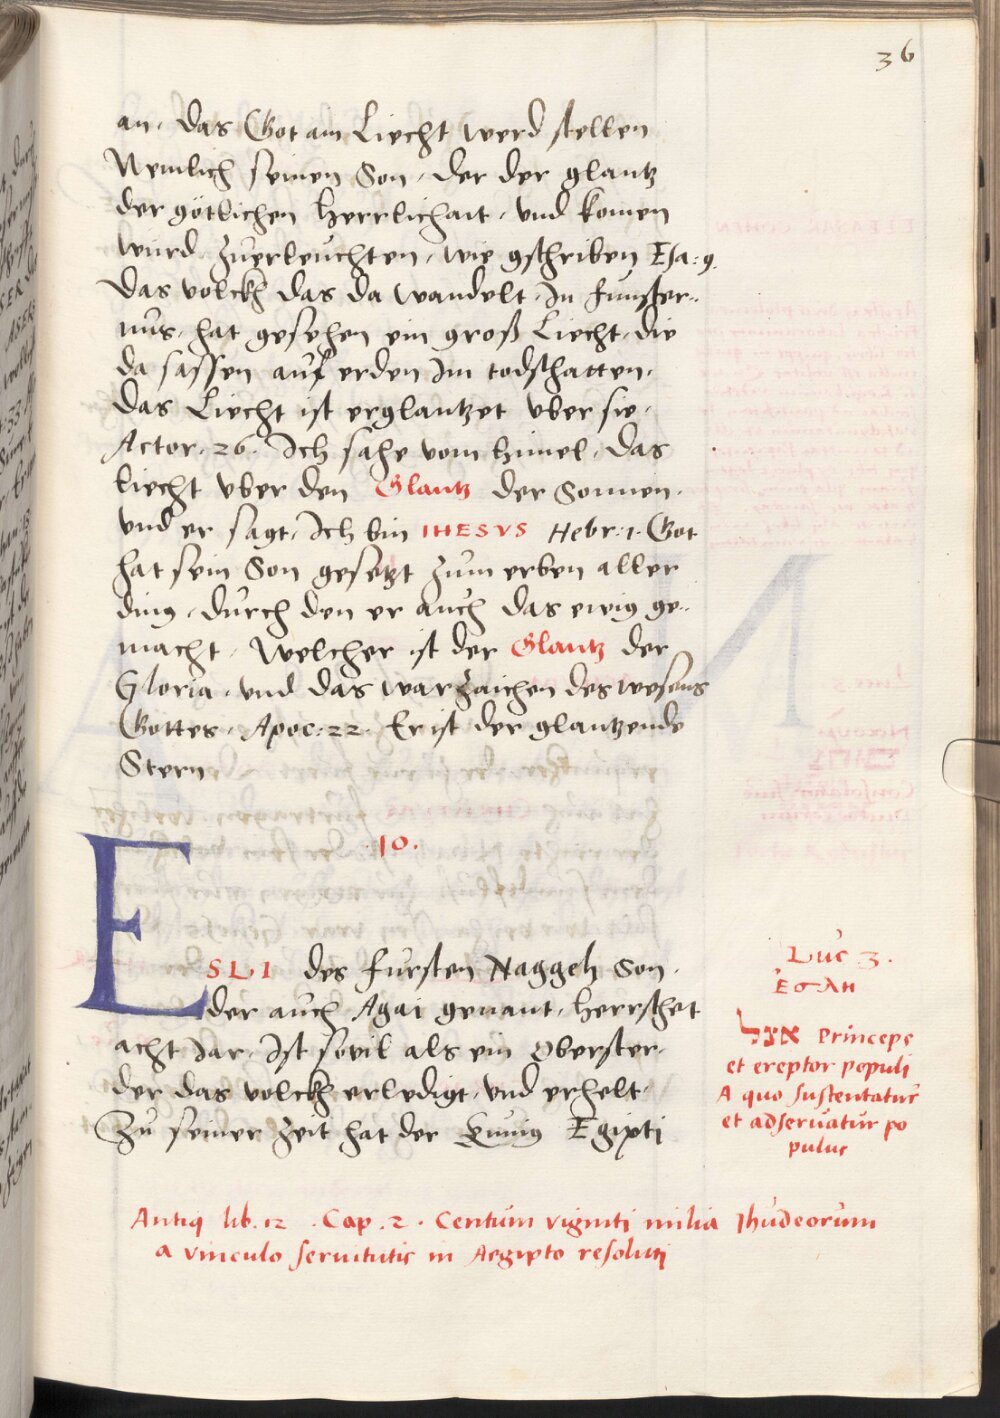 36
an. das Got am Liecht werd stellen
Nemlich seinen Son. der der glantz
der götlichen Herrlichait. vnd komen
würd zuerleuchten. wie gschriben Esa: 9.
Das volckh das da wandelt. In funster-
nus. hat gesehen ein groß Liecht. die
da sassen auf erden Im todschatten.
das Liecht ist erglantzet vber sie.
Actor. 26. Ich sahe vom himel. das
liecht vber den Glantz der Sonnen.
vnd er sagt. Ich bin IHESVS Hebr: 1. Got
hat sein Son gesetzt zum erben aller
ding. durch den er auch das ewig ge-
macht. Welcher ist der Glantz der
Gloria. vnd das warzaichen des wesens
Gottes. Apoc: 22. Er ist der glantzende
Stern
10.
ESLI des fursten Naggeh Son.
der auch Agai genant. herrschet
acht Jar. Ist sovil als ein Oberster.
der das volckh erledigt. vnd erhelt.
Zu seiner zeit hat der Kunig Egipti
Luc 3.
Ἐσλη
אצל Princeps
et ereptor populi
A quo sustentatur
et adseruatur po
pulus
Antiq lib. 12 . Cap. 2. Centum viginti milia Jhudeorum
a vinculo seruitutis in Aegipto resoluti